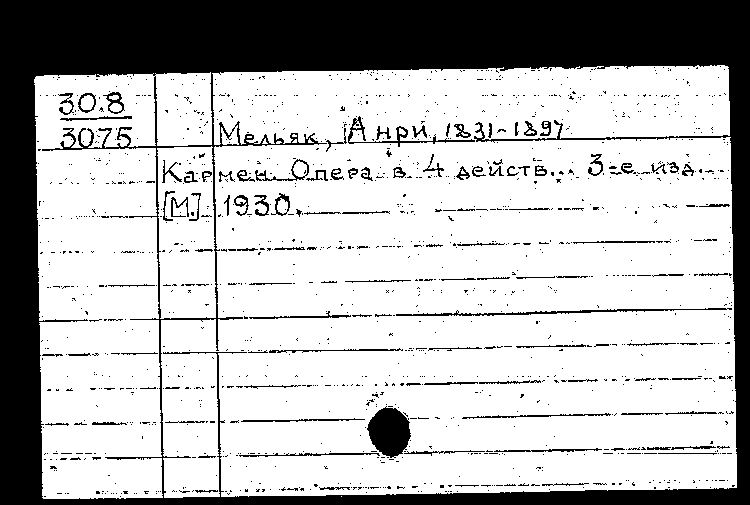 30.8
3075
Мельяк, Анри, 1831-1897
Кармен. Опера в 4 действ... 3-е изд...
[М.] 1930.